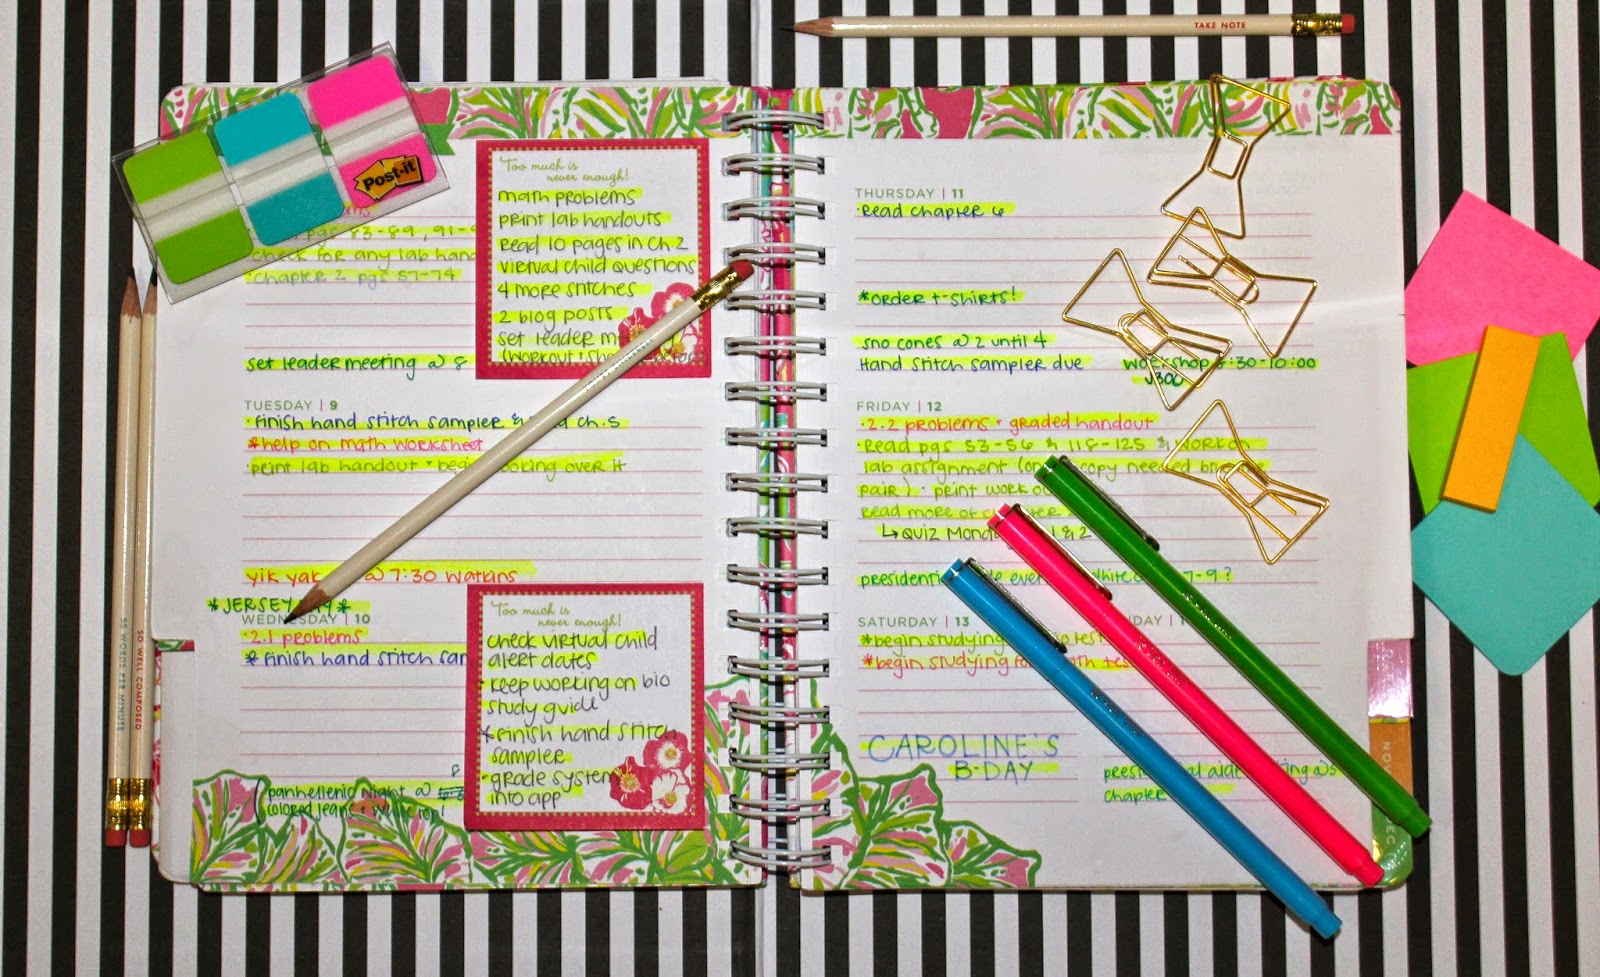 TAKE NOTE
Post-it
pgs 83-89, 91-9
check for any lab hand
·chapter 2 pgs 57-74
set leader meeting @ 8
Too much is
never enough!
math problems
print lab handouts
Read 10 pages in Ch.2
virtual child questions
4 more stitches
2 blog posts
set leader
(workout + sh
TUESDAY | 9
·finish hand stitch sampler & ch.5
*help on math worksheet
·print lab handout + begin looking over it
yik yak @ 7:30 Watkins
*JERSEY DAY*
WEDNESDAY | 10
·2.1 problems
*finish hand stitch sam
panhellenic night @
colored jeans + white top!
Too much is
never enough!
check virtual child
alert dates
·keep working on bio
study guide
*finish hand stitch
sampler
·grade system
into app
THURSDAY | 11
·Read chapter 6
*order t-shirts!
sno cones @ 2 until 4
Hand stitch sampler due
workshop :30-10:00
J300
FRIDAY | 12
·2.2 problems + graded handout
·Read pgs 53-56 & 118-125 & work on
lab assignment (only copy needed
pair) · print work
Read more of chapter
↳ Quiz Monday 1 & 2
7-9?
SATURDAY | 13
*begin studying bio test
*begin studying for math test
CAROLINE'S
B-DAY
chapter
SO WELL COMPOSED
55 WORDS PER MINUTE
NOV
DEC